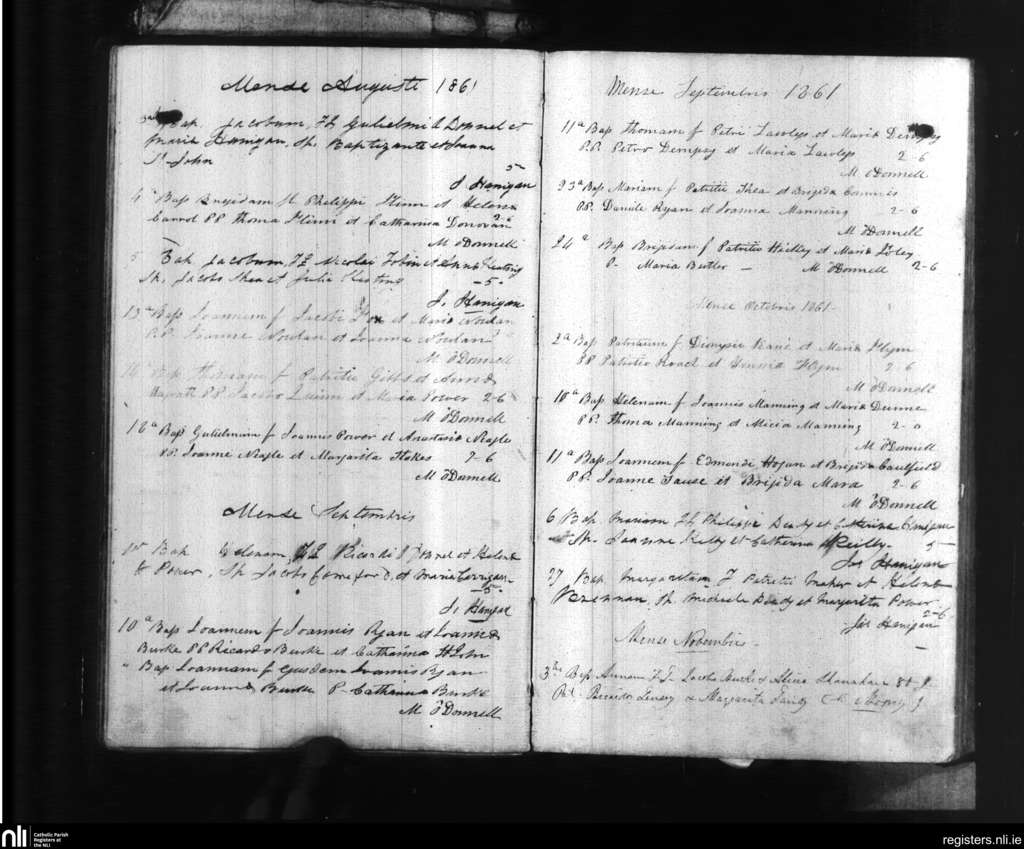 Mense Augusti 1861
Bap. Jacobum, FL Gulielmi O'Donnel et
Maria Hanigan, Sp. Baptizante et Joanna
St. John
5
J. Hanigan
4 Bap Brigidam fl Philippi Flinn et Helena
Carrol PP Thoma Flinn et Catharina Donovan
2-6
M O'Donnell
5 Bap Jacobum, FL Nicolai Tobin et Anna Keating
Sp. Jacobo Shea et Julia Keating
-5-
J. Hanigan
13a Bap Joannem f Jacobi Fox et Maria Nordan
P.P. Joanne Nordan et Joanna Nordan
M O'Donnell
Bap Thomam f Patritii Gibbs et Anna
PP Jacobo Quinn et Maria Power 2-6
M O'Donnell
18a Bap Gulielmum f Joannis Power et Anastasia Neagle
P.P. Joanne Neagle et Margarita Stokes 2-6
M O'Donnell
Mense Septembris
1st Bap Helenam FL Ricardi et Helena
Power, Sp. Jacobo et Maria Corrigan
-5-
J. Hanigan
10a Bap Joannem f Joannis Ryan et Joanna
Burke PP Ricardo Burke et Catharina St John
" Bap Joannam f Ejusdem Joannis Ryan
et Joanna Burke P- Catharina Burke
M O'Donnell
Mense Septembris 1861
11a Bap Thomam f Petri Lawless et Maria Dempsy
P.P. Petro Dempsy et Maria Lawless 2-6
M O'Donnell
23a Bap Mariam f Patritii Shea et Brigida Commins
P.P. Daniele Ryan et Joanna Manning 2-6
M O'Donnell
24a Bap Brigidam f Patritii Hickey et Maria Foley
P- Maria Butler - M O'Donnell 2-6
Mense Octobris 1861
2a Bap Patritium f Dionysii Kane et Maria Flynn
PP Patritio et Joanna Flynn 2-6
M O'Donnell
10a Bap Helenam f Joannis Manning et Maria Dunne
P.P. Thoma Manning et Alicia Manning 2-0
M O'Donnell
11a Bap Joannem f Edmondi Hogan et Brigida Caulfield
P.P. Joanne Sause et Brigida Mara 2-6
M O'Donnell
6 Bap. Mariam FL Philippi Deady et Catherina
Sp. Joanne Kelly et Catherina Reilly. 5
Jas Hanigan
27 Bap Margaritam F Patritii Maher et Helena
Brennan, Sp. Michaele Deady et Margarita Power
2-6
Jas Hanigan
Mense Novembris
3th Bap Annam F.L Jacobi Burke & Alicia Shanahan
P.P. Ricardo & Margarita
nli
Catholic Parish
Registers at
the NLI
registers.nli.ie